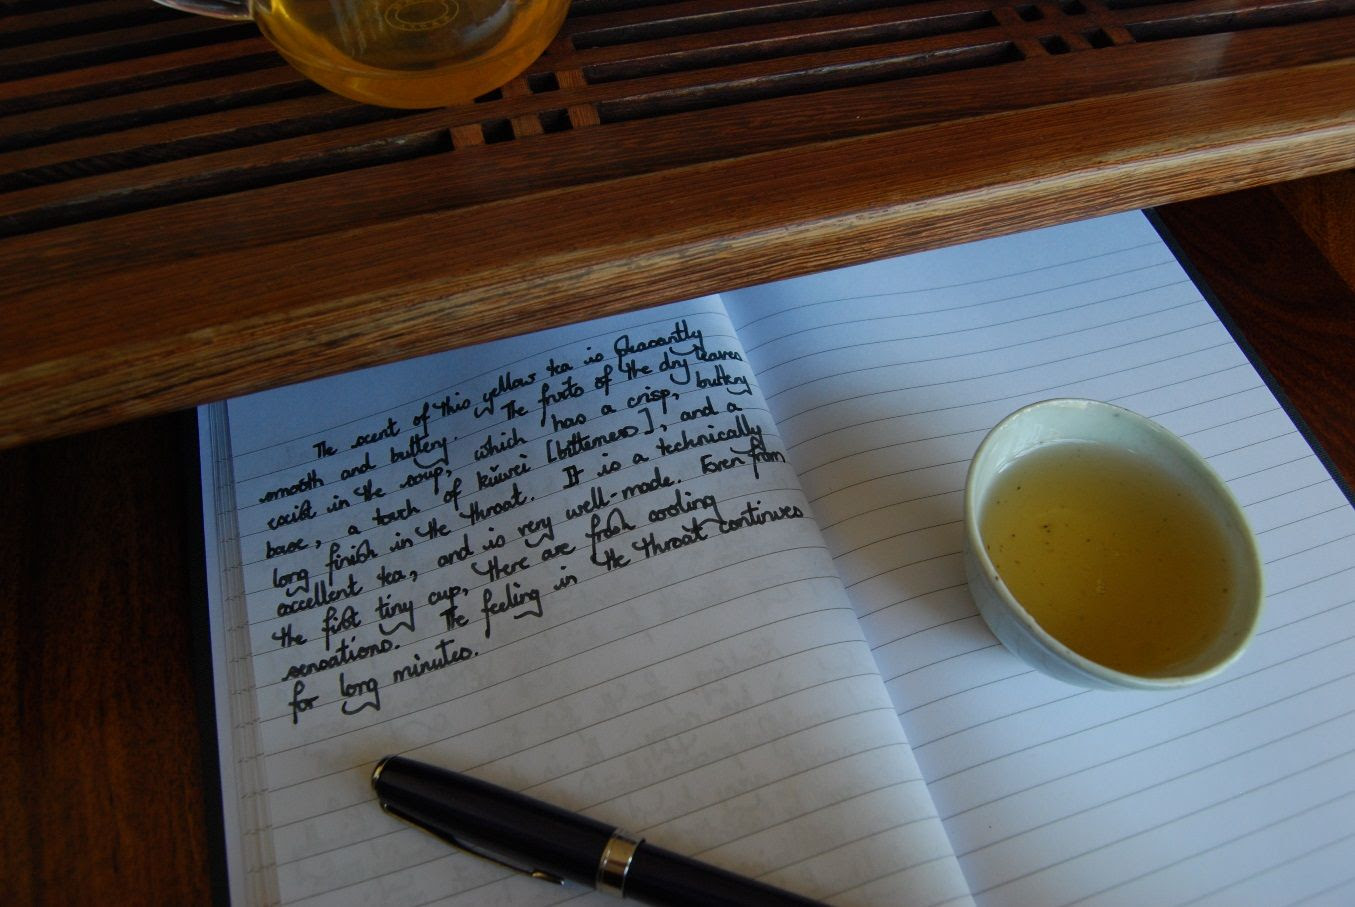 The scent of this yellow tea is pleasantly
smooth and buttery. The fruits of the dry leaves
exist in the soup, which has a crisp, buttery
base, a touch of kǔwei [bitterness], and a
long finish in the throat. It is a technically
excellent tea, and is very well-made. Even from
the first tiny cup, there are fresh cooling
sensations. The feeling in the throat continues
for long minutes.